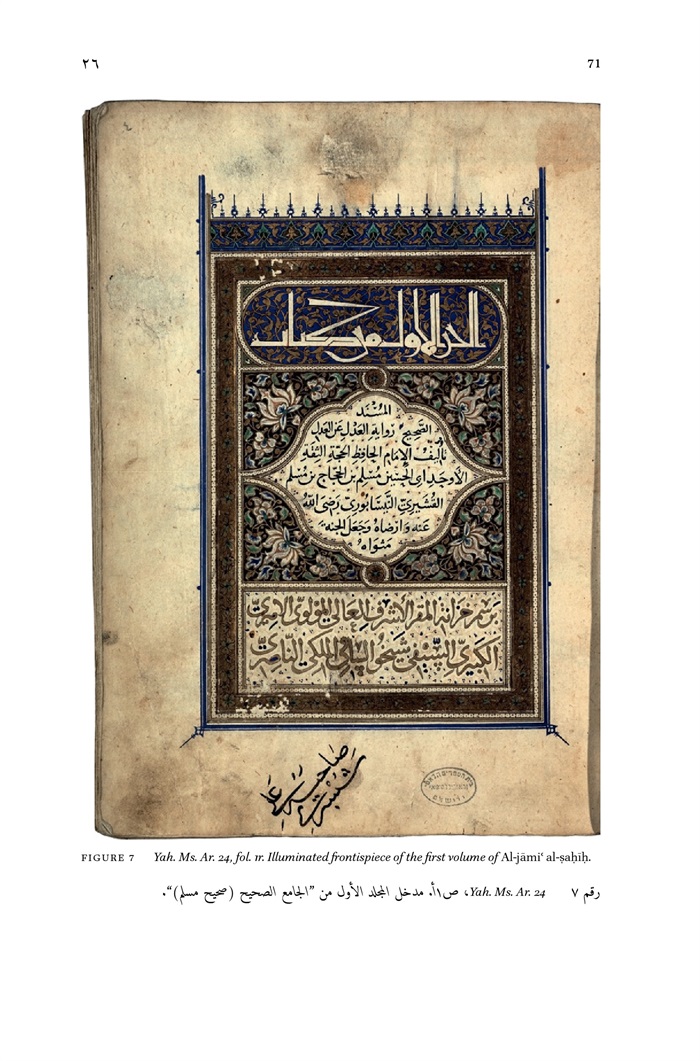 ٢٦
71
الجزء الأول من كتاب
المُسْنَد
الصحيح رواية العَدْل عَن العَدل
تأليف الإمام الحافظ الحجّة الثقة
الأوحد ابى الحسين مُسْلم بن الحجاج بن مُسْلم
القُشيريّ النَّيسَابُوريّ رَضِىَ اللهُ
عَنه وَارْضاهُ وَجَعَل الجنه
مَثواه
برسم خزانة المقر الأشرف العالى المولوىّ الاميرىّ
الكبيرىّ السَّيفى شيخو الملكى الناصرىّ
صاحبه
FIGURE 7 Yah. Ms. Ar. 24, fol. 1r. Illuminated frontispiece of the first volume of Al-jāmiʿ al-ṣaḥīḥ.
رقم ٧ Yah. Ms. Ar. 24، ص١أ. مدخل المجلد الأول من ”الجامع الصحيح (صحيح مسلم)“.